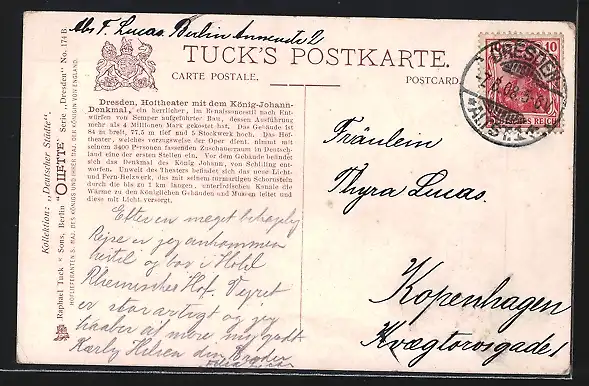 Abs F. Lucas. Berlin
TUCK'S POSTKARTE.
CARTE POSTALE.
POSTCARD.
Kollektion: „Deutscher Städte".
Raphael Tuck & Sons, Berlin "OILETTE" Serie „Dresden" No. 174 B.
HOFLIEFERANTEN S. MAJ. DES KÖNIGS UND IHRER MAJ. DER KÖNIGIN VON ENGLAND.
Dresden, Hoftheater mit dem König-Johann-
Denkmal, ein herrlicher, im Renaissancestil nach Ent-
würfen von Semper aufgeführter Bau, dessen Ausführung
mehr als 4 Millionen Mark gekostet hat. Das Gebäude ist
84 m breit, 77,5 m tief und 5 Stockwerk hoch. Das Hof-
theater, welches vorzugsweise der Oper dient, nimmt mit
seinem 3400 Personen fassenden Zuschauerraum in Deutsch-
land eine der ersten Stellen ein. Vor dem Gebäude befindet
sich das Denkmal des König Johann, von Schilling ent-
worfen. Unweit des Theaters befindet sich das neue Licht-
und Fern-Heizwerk, das mit seinem turmartigen Schornstein
durch die bis zu 1 km langen, unterirdischen Kanäle die
Wärme zu den Königlichen Gebäuden und Museen leitet und
diese mit Licht versorgt.
Efter en meget behagelig
Rejse er jeg ankommen
hertil og bor i Hotel
Rheinischer Hof. Vejret
er storartigt og jeg
haaber af more mig godt
Kærlig Hilsen din Broder
10
DRESDEN
REICH
Fräulein
Thyra Lucas.
Kopenhagen
Kvægtorvsgade 1